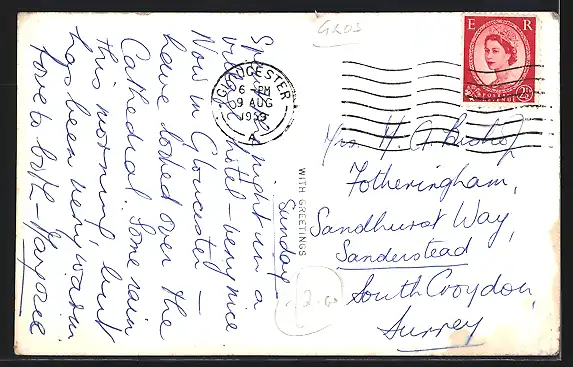 GLOS
E R
POSTAGE
REVENUE
2½D
GLOUCESTER
6 - PM
9 AUG
1959
A
WITH GREETINGS
Sunday
Spent a night in a
village hotel - very nice
Now in Gloucester -
have looked over the
Cathedral. Some rain
this morning but
has been very warm.
Love to both - Marjorie
Mrs. H. A. Bishop,
Fotheringham,
Sandhurst Way,
Sanderstead
South Croydon,
Surrey
2.60